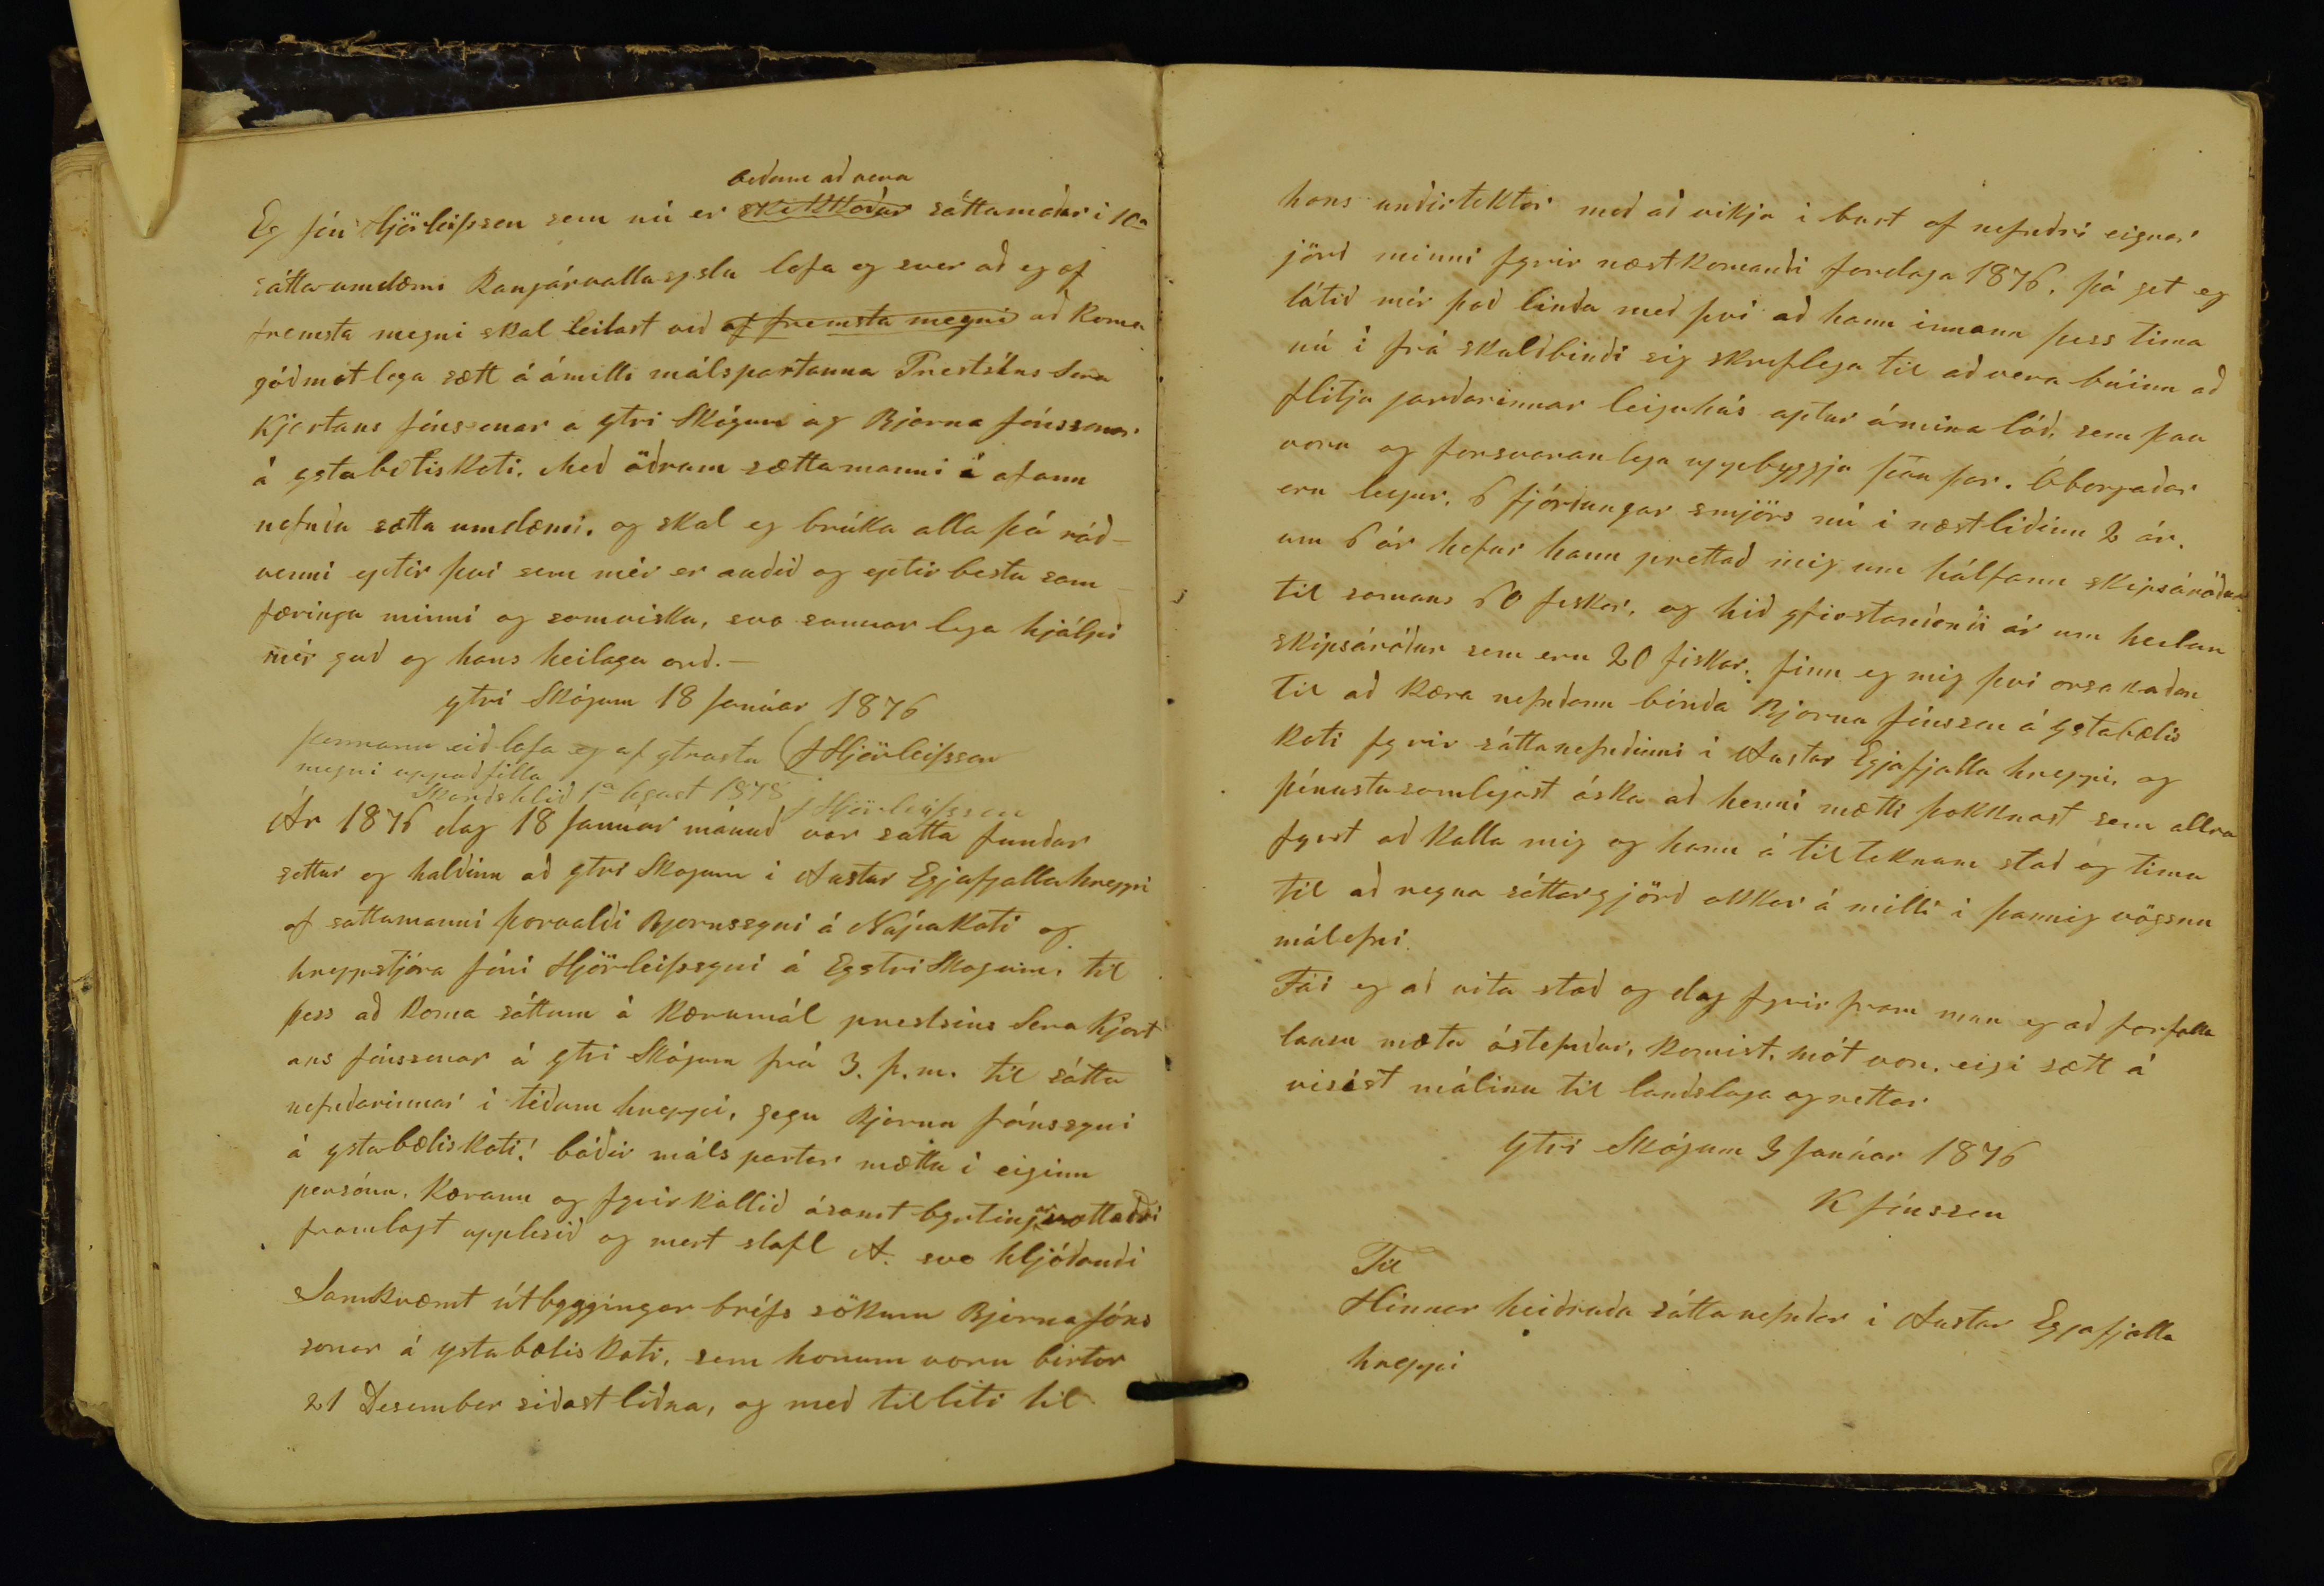 beðinn að vera
Eg Jón Hjörleifsson sem nú er skikkaður sáttamaður í 10a
sáttaumdæmi Rangárvallasyslu lofa og sver að eg af
fremsta megni skal leitast við af fremsta megni að koma
góðmótlega sætt á ámilli málspartanna Prestsins Sera
Kjartans Jónssonar a ytri Skógum og Bjarna Jónssonar
á ystabæliskoti. Með öðrum sættamanni í ofann
nefndu sætta umdæmi. og skal eg brúka alla þá ráð-
venni eptir því sem mér er auðið og eptir bestu sann-
færingu minni og samvisku, svo sannarlega hjálpi
mér guð og hans heilaga orð.-
ytri Skógum 18 Janúar 1876
þennann eið lofa eg af ytrasta JHjörleifsson
megni uppað filla
Skarðshlið 1a 1878
J Hjörleifsson
Ár 1876 dag 18 Januar mánuð var sátta fundur
settur og haldinn að ytri Skogum i Austur Eyjafjallahreppi
af sattamanni Þorvaldi Bjornssyni á Núpakoti og
hreppstjóra Jóni Hjörleifssyni á Eystri Skogum. til
þess að koma sáttum á kærumál prestsins Sera Kjart
ans Jónssonar á ytri Skógum frá 3. þ.m. til sátta
nefndarinnar i téðum hreppi, gegn Bjarna Jónssyni
á ystabæliskoti! báðir máls partar mættu i eiginn
persónu. Kærann og fyrirkallið ásamt byrting votta
framlagt upplesið og mert stafl A. svo hljóðandi
Samkvæmt útbyggingar brefs sökum Bjarna Jóns
sonar á ystabæliskoti, sem honum voru birtar
21 Desember siðast liðna, og með tilliti til
hans undirtektar með að vikja i burt af nefndri eignar
jörð minni fyrir næstkomandi fardaga 1876. þá get eg
látið mér það linda með því að hann innann þess tima
nú i frá skuldbindi sig skreflega til að vera búinn að
flitja jarðarinnar leiguhús aptur á mina lóð, sem þau
voru og forsvaranlega uppbyggja þau þar. Óborgaðar
eru leigur. 6 fjórðungar smjörs nú i næstliðinn 2 ár.
um 6 ár hefur hann prettað mig um hálfann skipsáróður
til samans 60 fiskar. og hið yfirstandandi ár um heilan
skipsáróður sem eru 20 fiskar. finn eg mig því orsakaðan
til að kæra nefndann bónda Bjarna Jónsson á ystabælis
koti fyrir sáttanefndinni i Austur Eyjafjalla hreppi, og
þénustusamlegast óska að henni mætti þokknast sem allra
fyrst að kalla mig og hann á tilteknum stað og tima
til að regna sáttargjörð okkar á milli i þannig vögsnu
málefni.
Fái eg að vita stað og dag fyrir fram mun eg að forfalla
lausu mæta óstefndur, komist. mót von. eigi sætt á
visist málinu til landslaga og rettar
Ytri Skógum 3 Janúar 1876
K Jónsson
Til
Hinnar heiðruðu sáttanefndar i Austur Eyjafjalla
hreppi